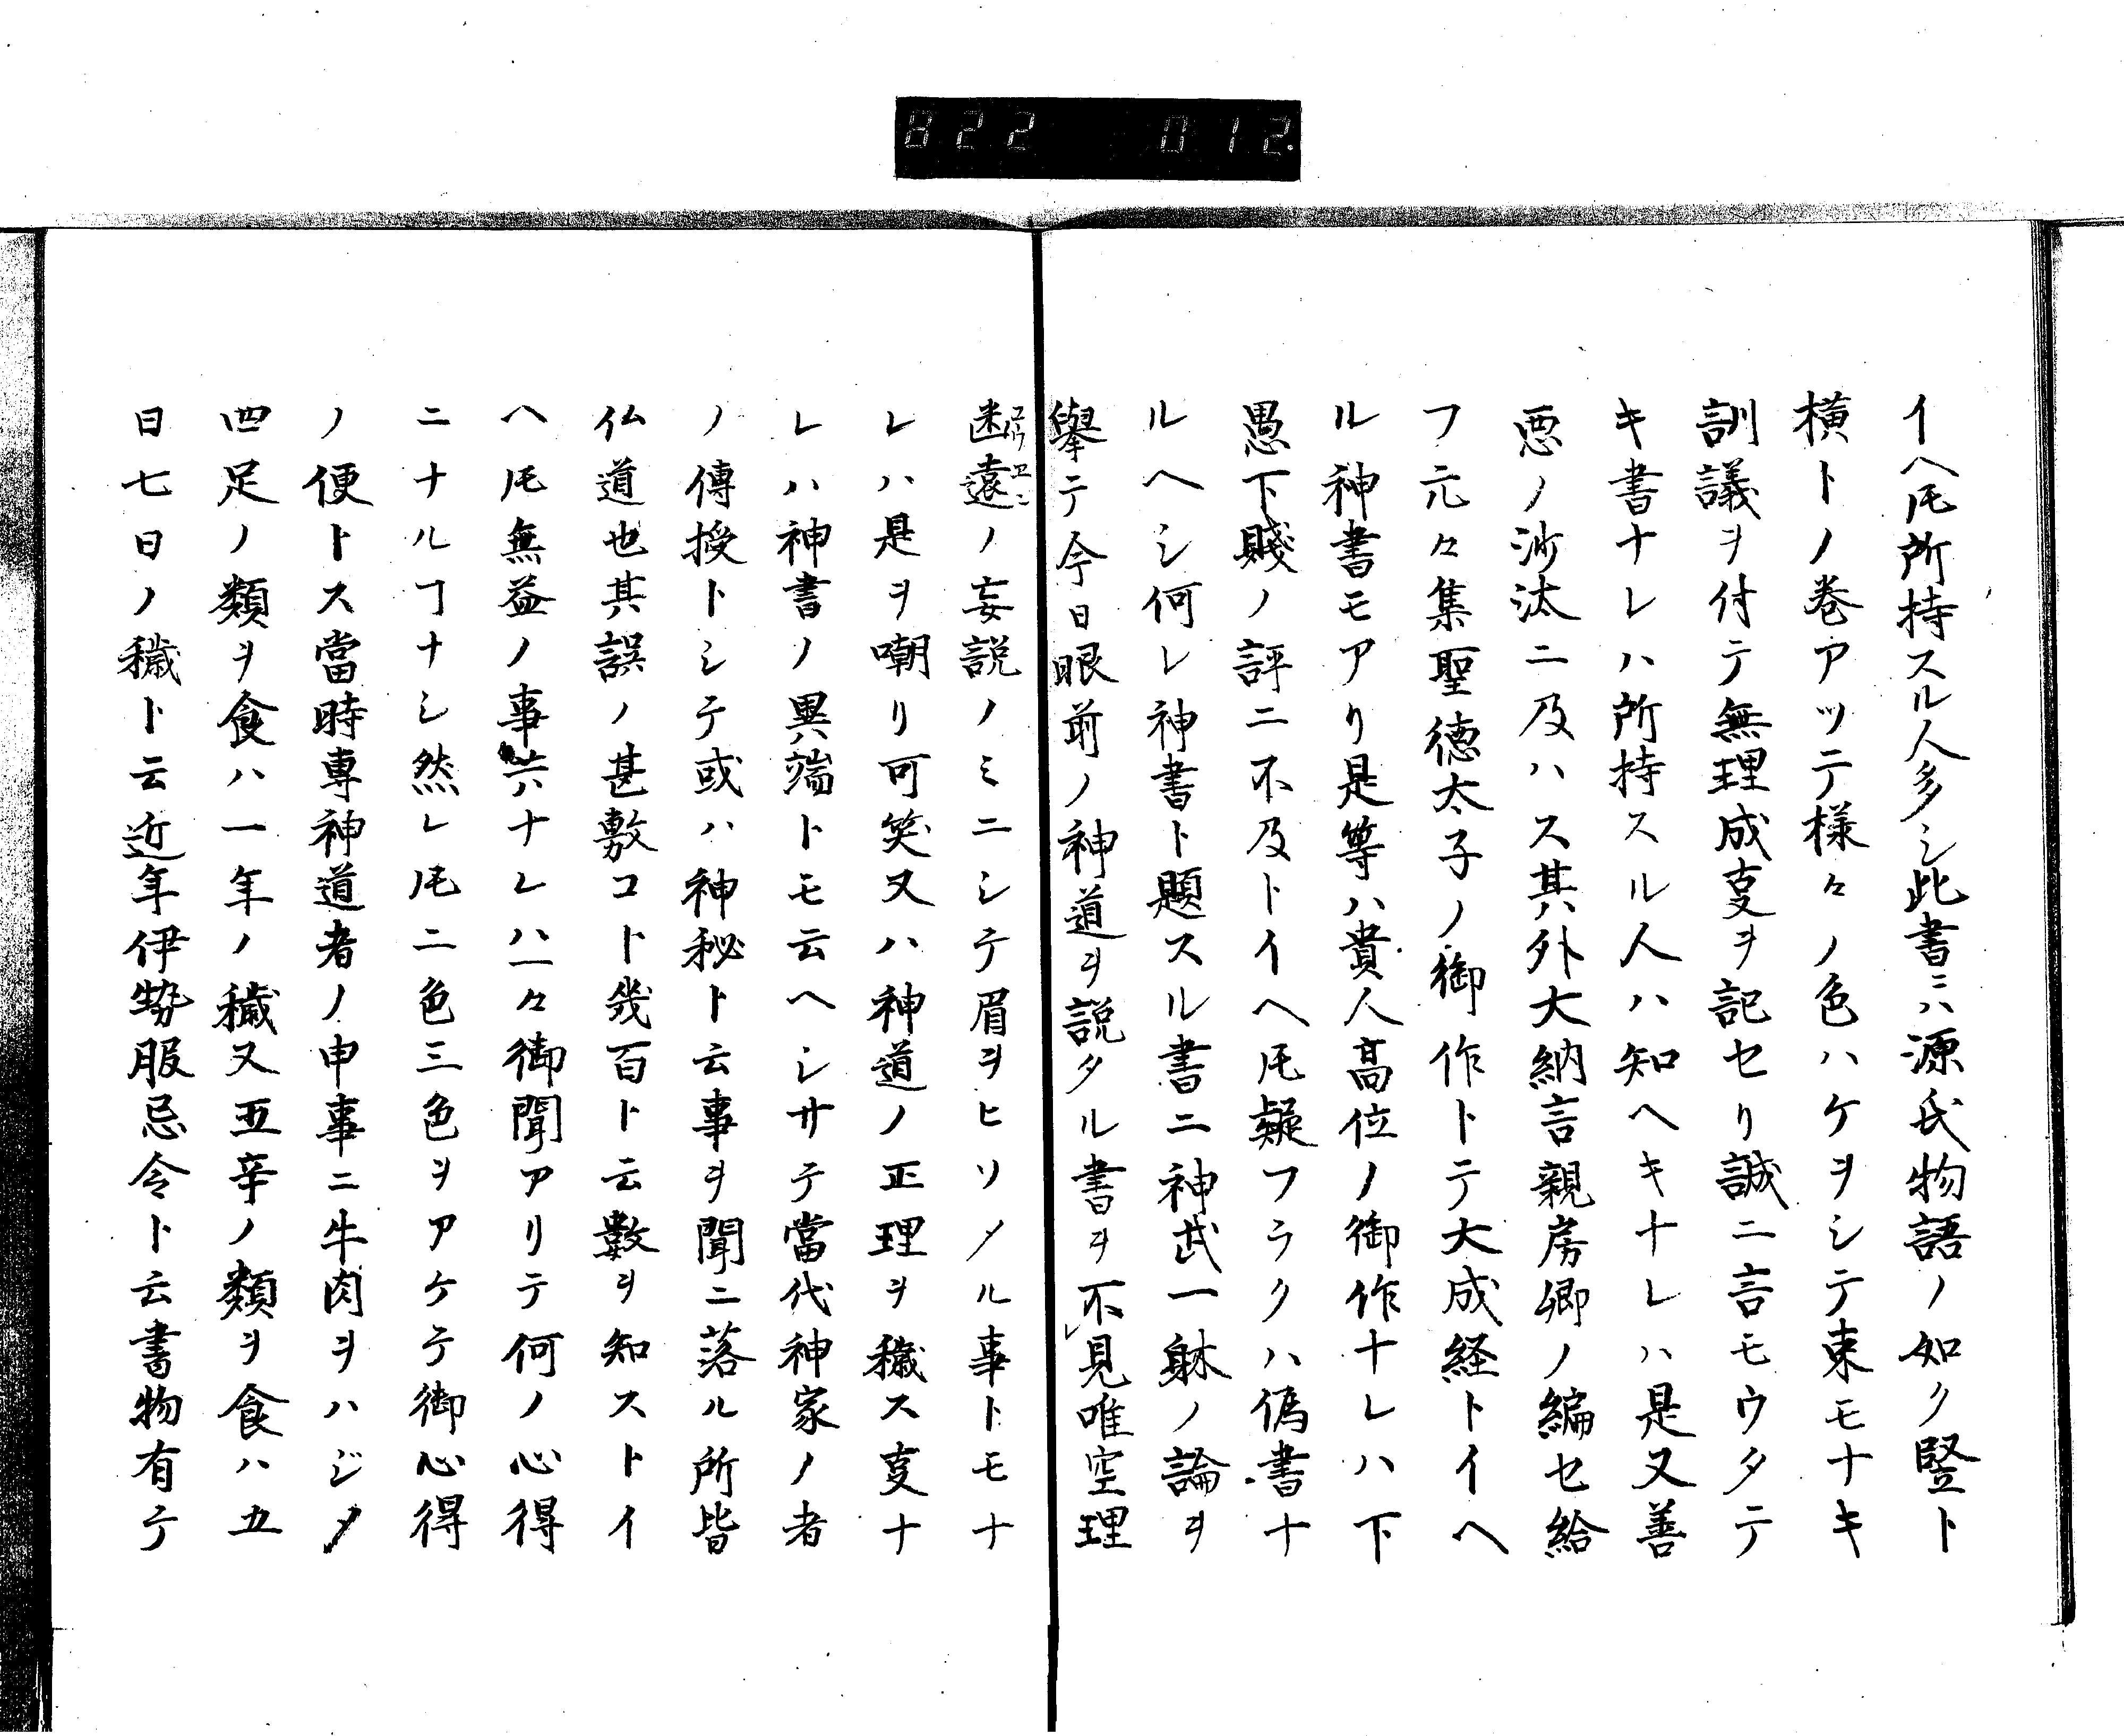 822 012.
イヘ𪜈所持スル人多シ此書ニハ源氏物語ノ如ク竪ト
横トノ巻アツテ様々ノ色ハケヲシテ束モナキ
訓議ヲ付テ無理成叓ヲ記セリ誠ニ言モウタテ
キ書ナレハ所持スル人ハ知ヘキナレハ是又善
悪ノ沙汰ニ及ハス其外大納言親房卿ノ編セ給
フ元々集聖徳太子ノ御作トテ大成経トイヘ
ル神書モアリ是等ハ貴人高位ノ御作ナレハ下
愚下賤ノ評ニ不及トイヘ𪜈疑フラクハ偽書ナ
ルヘシ何レ神書ト題スル書ニ神武一躰ノ論ヲ
擧テ今日眼前ノ神道ヲ説タル書ヲ不レ見唯空理
遠ノ妄説ノミニシテ眉ヲヒソメル事トモナ
レハ是ヲ嘲リ可笑又ハ神道ノ正理ヲ穢ス叓ナ
レハ神書ノ異端トモ云ヘシサテ當代神家ノ者
ノ傳授トシテ或ハ神秘ト云事ヲ聞ニ落ル所皆
仏道也其誤ノ甚敷コト幾百ト云數ヲ知ストイ
ヘ𪜈無益ノ事共ナレハ一々御聞アリテ何ノ心得
ニナルヿナシ然レ𪜈二色三色ヲアケテ御心得
ノ便トス當時専神道者ノ申事ニ牛肉ヲハジメ
四足ノ類ヲ食ハ一年ノ穢又五辛ノ類ヲ食ハ五
日七日ノ穢ト云近年伊勢服忌令ト云書物有テ